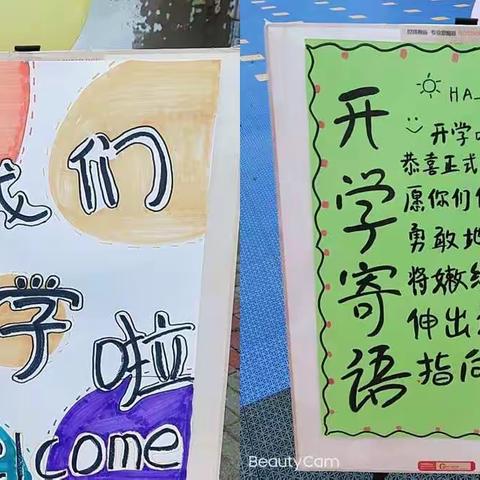 我们
学啦
elcome
开学寄语
HA
开学
恭喜正式
愿你们
勇敢地
将嫩绿
伸出
指向
BeautyCam